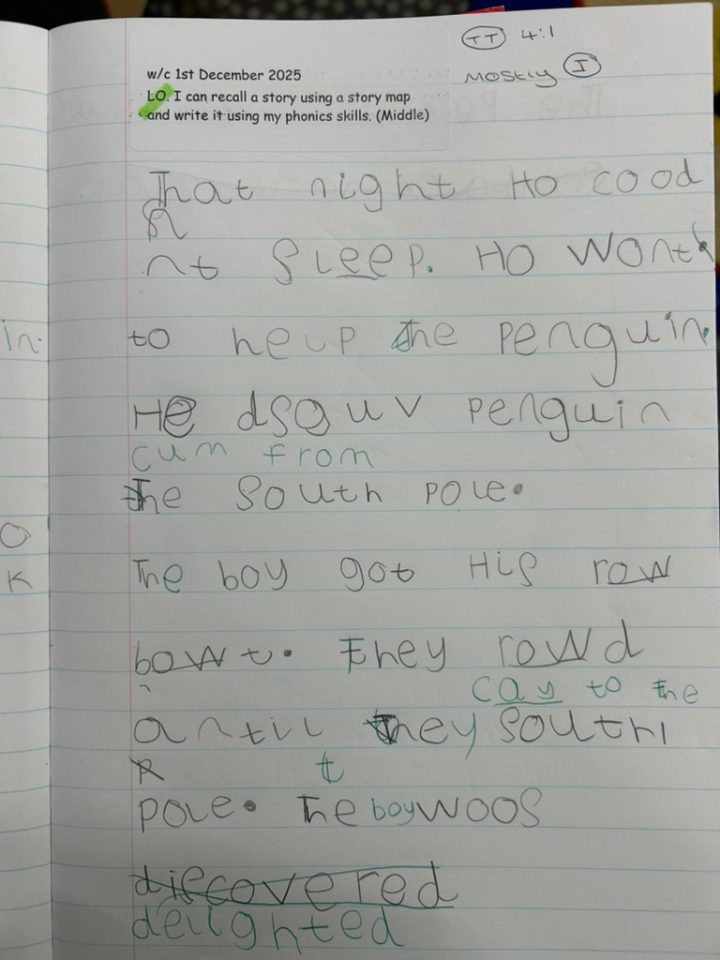 TT 4:1
mostly I
w/c 1st December 2025
LO. I can recall a story using a story map
and write it using my phonics skills. (Middle)
That night Ho cood
nt sleep. Ho wont
to help the penguin.
He dsouv penguin
cum from
the south pole.
The boy got His row
bowt. they rowd
cay to the
antil they south
pole. The boy woos
discovered
delighted
in.
O
K